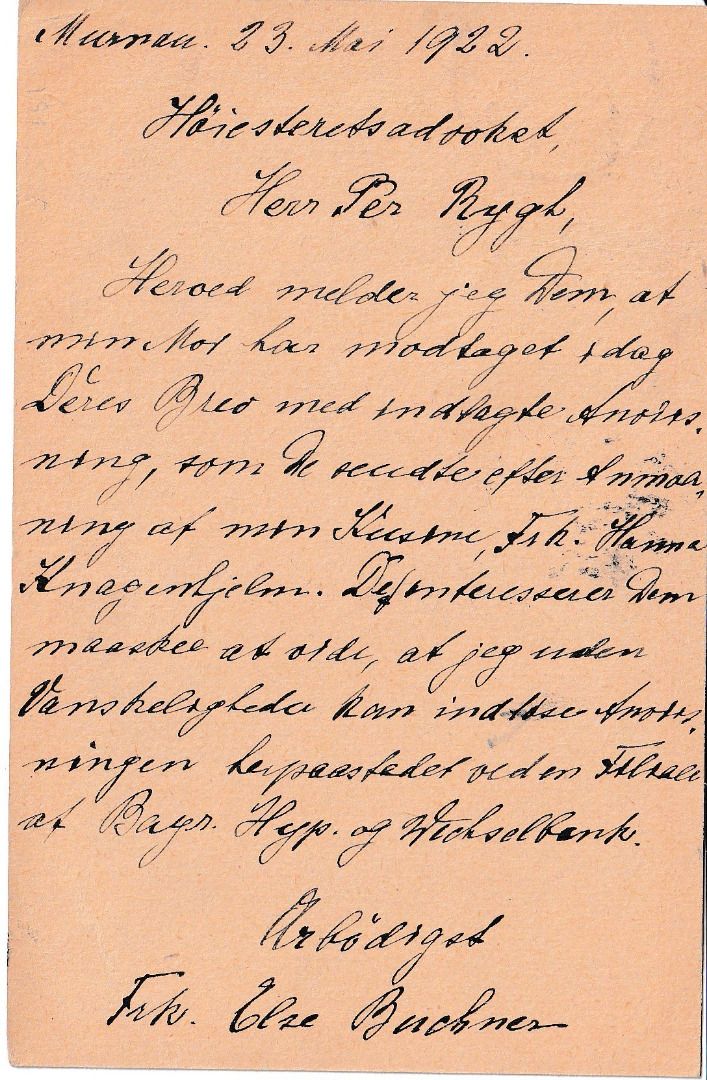 Murnau. 23. Mai 1922.
Höiesteretsadvokat,
Herr Per Rygh,
Herved melder jeg Dem, at
min Mor har modtaget idag
Deres Brev med indlagte Anvis-
ning, som De sendte efter Anmod-
ning af min Kusine, Frk. Hanna
Knagenhjelm. Det interesserer Dem
maaskee at vide, at jeg uden
Vanskeligheder kan indlöse Anvis-
ningen herpaastedet ved en Filiale
af Bayr. Hyp. og Wechselbank.
Ærbödigst
Frk. Else Buchner